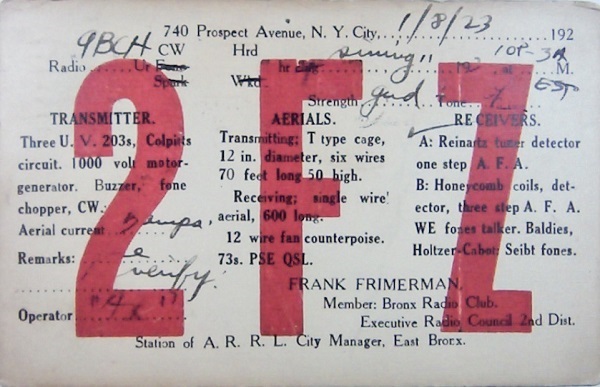 740 Prospect Avenue, N. Y. City, 1/8/23 192
9BCH CW Hrd
10P-3A
Radio Ur Fone hr 192 at M.
Spark Wkd. EST
Strength gud Tone
2FZ
TRANSMITTER. AERIALS. RECEIVERS.
Three U. V. 203s, Colpitts
circuit. 1000 volt motor-
generator. Buzzer, fone
chopper, CW.
Aerial current
Remarks:
verify
Operator "4x"
Transmitting; T type cage,
12 in. diameter, six wires
70 feet long 50 high.
Receiving; single wire
aerial, 600 long.
12 wire fan counterpoise.
73s. PSE QSL.
A: Reinartz tuner detector
one step A. F. A.
B: Honeycomb coils, det-
ector, three step A. F. A.
WE fones talker. Baldies,
Holtzer-Cabot; Seibt fones.
FRANK FRIMERMAN,
Member: Bronx Radio Club.
Executive Radio Council 2nd Dist.
Station of A. R. R. L. City Manager, East Bronx.